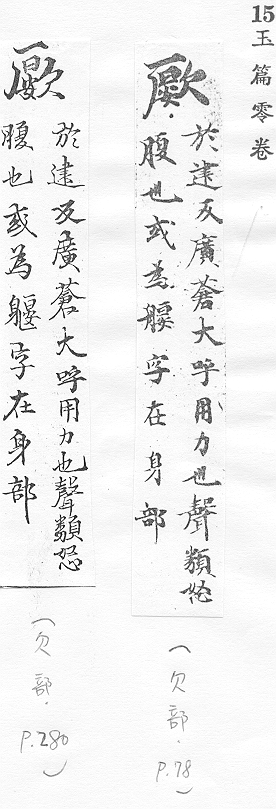 15 玉篇零卷
於建反廣蒼大呼用力也聲類怒
腹也或為躽字在身部
(欠部. P.78)
於建反廣蒼大呼用力也聲類怒
腹也或為躽字在身部
(欠部. P.280)